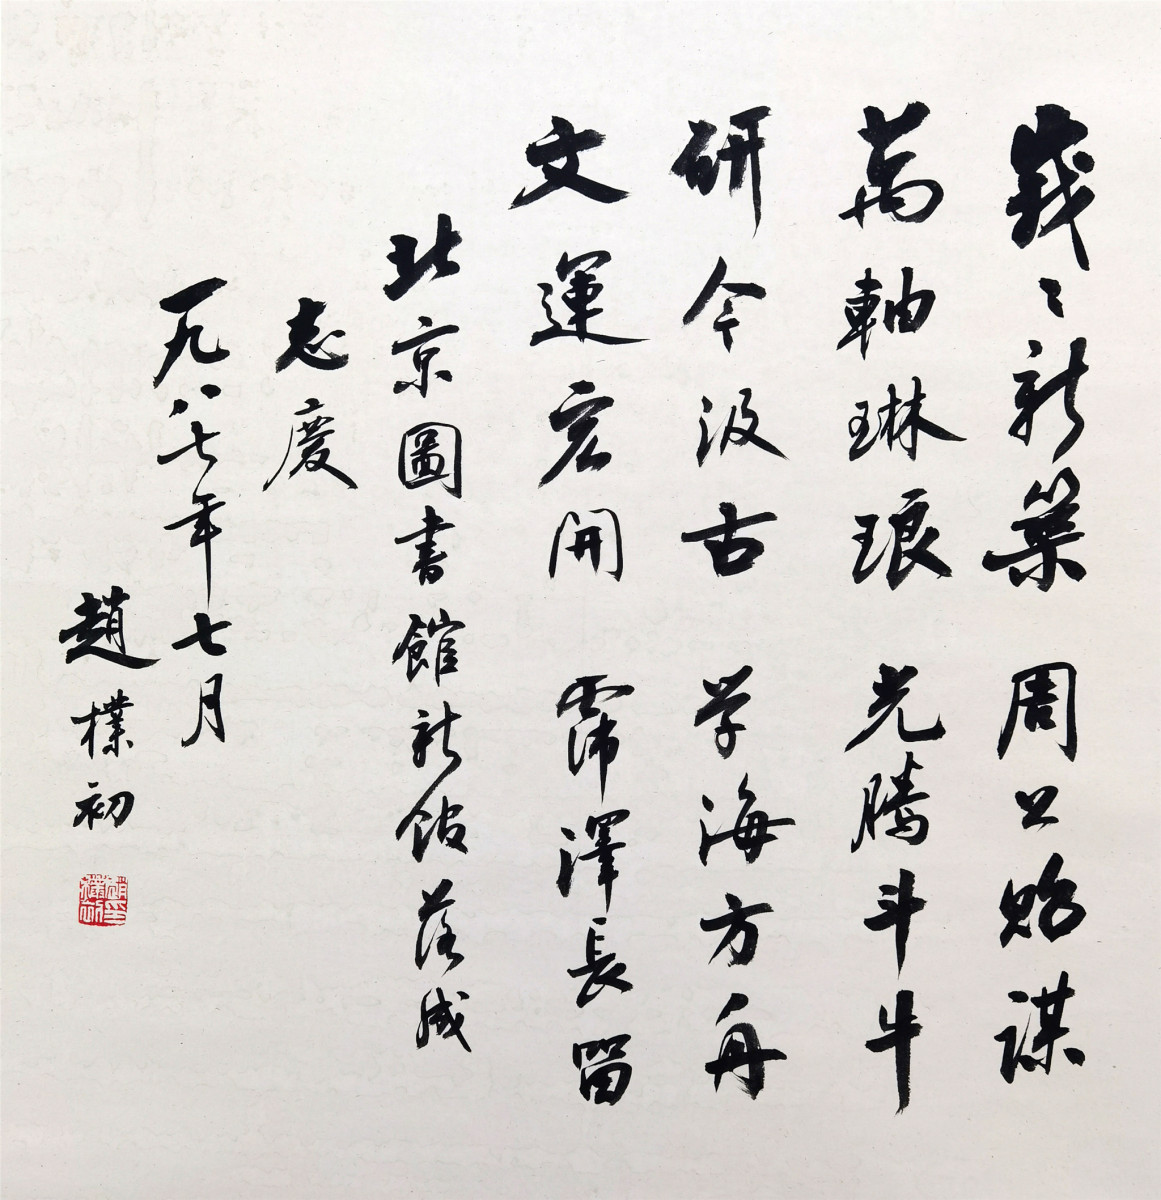 峩〻新築 周公貽謀
萬軸琳琅 光騰斗牛
研今汲古 学海方舟
文運宏開 霈澤長留
北京圖書館新館落成
志慶
一九八七年七月
趙樸初
趙樸初印